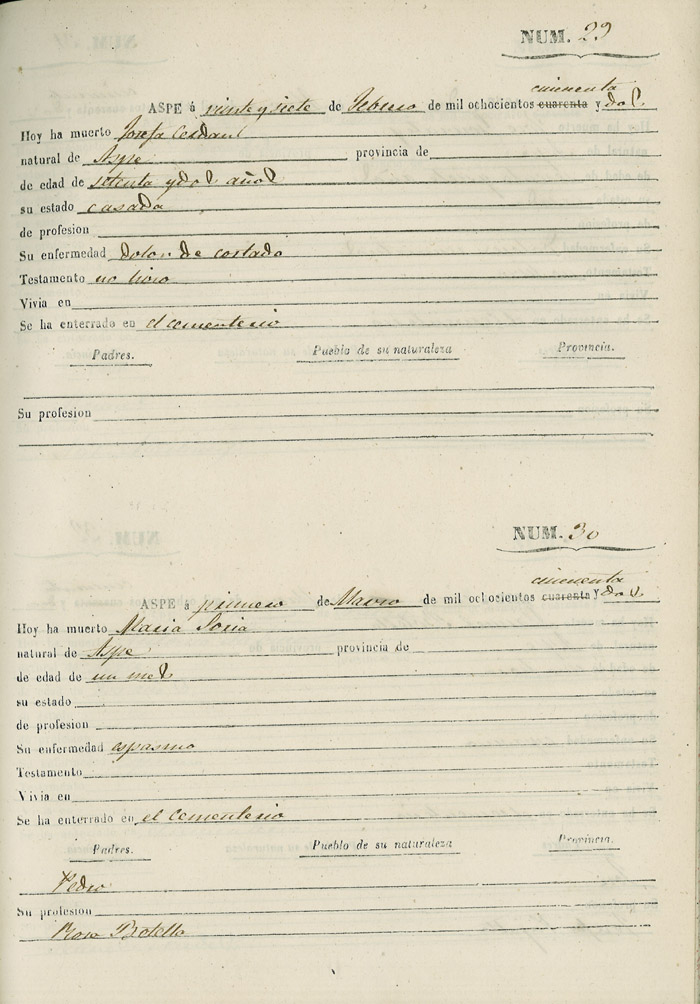 NUM. 29
cincuenta
ASPE á vinte y siete de Febrero de mil ochocientos cuarenta y dos.
Hoy ha muerto Josefa
natural de Aspe provincia de
de edad de setenta y dos años
su estado casada
de profesion
Su enfermedad dolor de costado
Testamento no hiso
Vivia en
Se ha enterrado en el cementerio
Padres. Pueblo de su naturaleza Provincia.
Su profesion
NUM. 30
cincuenta
ASPE á primero de Marzo de mil ochosientos cuarenta y dos.
Hoy ha muerto Maria Soria
natural de Aspe provincia de
de edad de un mes
su estado
de profesion
Su enfermedad espasmo
Testamento
Vivia en
Se ha enterrado en el Cementerio
Padres. Pueblo de su naturaleza Provincia.
Pedro
Su profesion
Rosa Botella